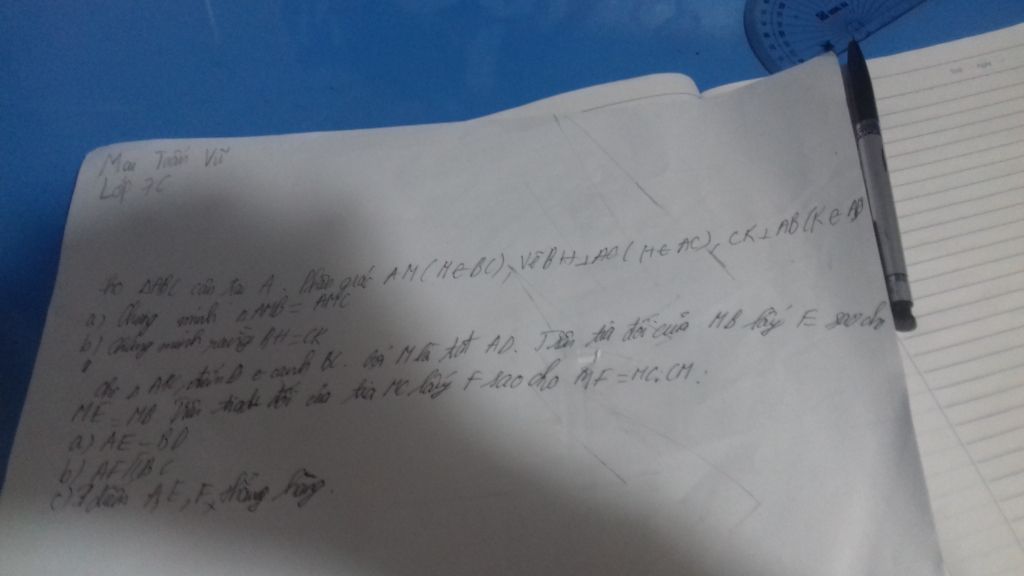 Mai Trần Vũ
Lớp 7C
ho ΔABC cân tại A. Phân giác AM (M∈BC), Vẽ BH⊥AC (H∈AC), CK⊥AB (K∈AB
a) Chứng minh ΔAMB = AMC
b) Chứng minh rằng BH=CK
Cho ΔABC, điểm D ∈ cạnh BC. Gọi M là tđ AD. Trên tia đối của MB lấy E sao cho
ME = MB Trên tia đối của tia MC lấy F sao cho MF = MC. CM:
a) AE = BD
b) AF // BC
c) 3 điểm A, E, F thẳng hàng.